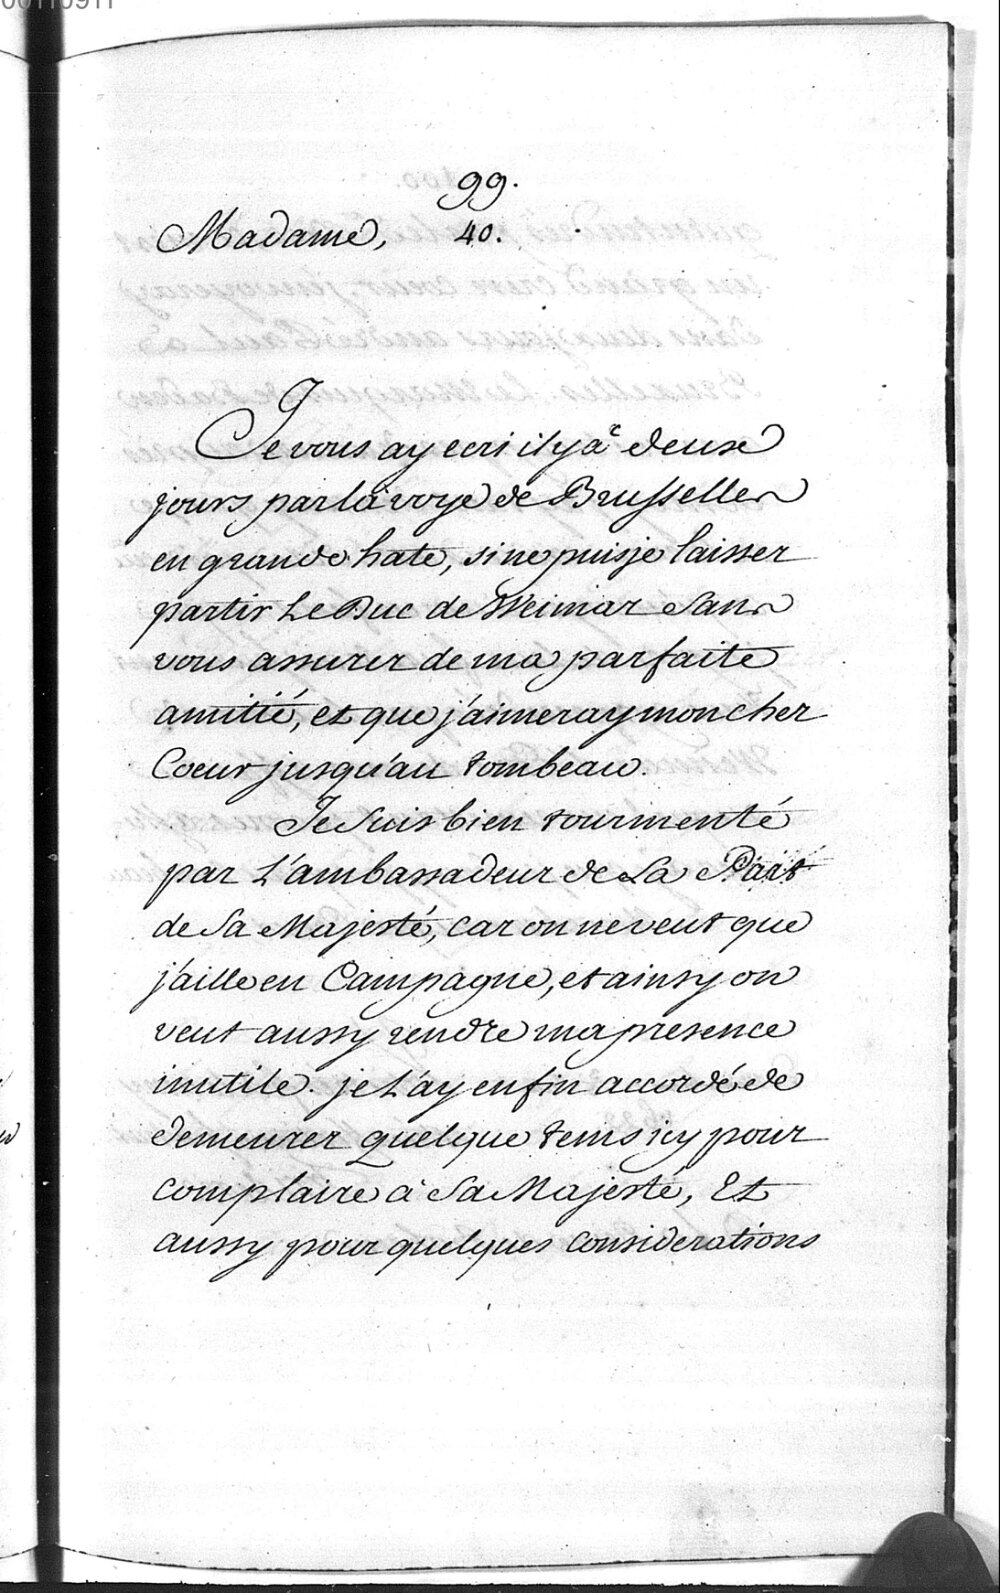 00110911
99.
Madame, 40.
Je vous ay ecri il y â deux
jours par la voye de Brusselles
en grande hate, si ne puis je laisser
partir Le Duc de Weimar sans
vous assurer de ma parfaite
amitié, et que j'aimeray mon cher
Coeur jusqu'au tombeau.
Je suis bien tourmenté
par L'ambassadeur de La Part
de Sa Majesté, car on ne veut que
j'aille en Campagne, et ainsy on
veut aussy rendre ma presence
inutile. je L'ay enfin accordé de
demeurer quelque tems icy pour
complaire à Sa Majesté, Et
aussy pour quelques considerations